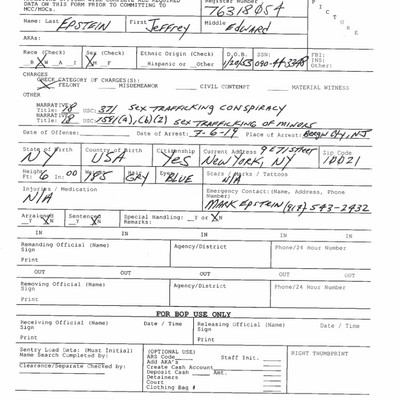 DATA ON THIS FORM PRIOR TO COMMITTING TO
MCC/MDCs.
Register Number
76318054
P I C T U R E
Name: Last EPSTEIN First Jeffrey Middle Edward
AKAs:
Race (Check) Sex (Check) Ethnic Origin (Check) D.O.B. SSN: FBI:
B W A I M F Hispanic or Other 1/20/53 INS:
Other:
CHARGES
CHECK CATEGORY OF CHARGE(S):
X FELONY MISDEMEANOR CIVIL CONTEMPT MATERIAL WITNESS
OTHER
NARRATIVE
Title: 18 USC: 371 SEX-TRAFFICKING CONSPIRACY
NARRATIVE
Title: 18 USC: 1591(a),(b)(2) SEX TRAFFICKING OF MINORS
Date of Offense: Date of Arrest: 7-6-19 Place of Arrest: NJ
State of Birth Country of Birth Citizenship Current Address 9 E 71 Street Zip Code
NY USA Yes NEW YORK, NY 10021
Height Weight Hair Eyes Scars / Marks / Tattoos
Ft: 6 In: 00 185 GRY BLUE N/A
Injuries / Medication Emergency Contact: (Name, Address, Phone Number)
N/A MARK EPSTEIN
Arraigned Sentenced Special Handling: Y or N
Y N Y N Remarks:
IN IN IN
Remanding Official (Name) Agency/District Phone/24 Hour Number
Sign
Print
OUT OUT OUT OUT
Removing Official (Name) Agency/District Phone/24 Hour Number
Sign
Print
FOR BOP USE ONLY
Receiving Official (Name) Date / Time Releasing Official (Name) Date / Time
Sign Sign
Print Print
Sentry Load Data: (Must Initial) (OPTIONAL USE) RIGHT THUMBPRINT
Name Search Completed by: ARS Code Staff Init.
Add AKA's
Clearance/Separate Checked by: Create Cash Account
Deposit Cash Amt.
Detainers
Court
Clothing Bag #